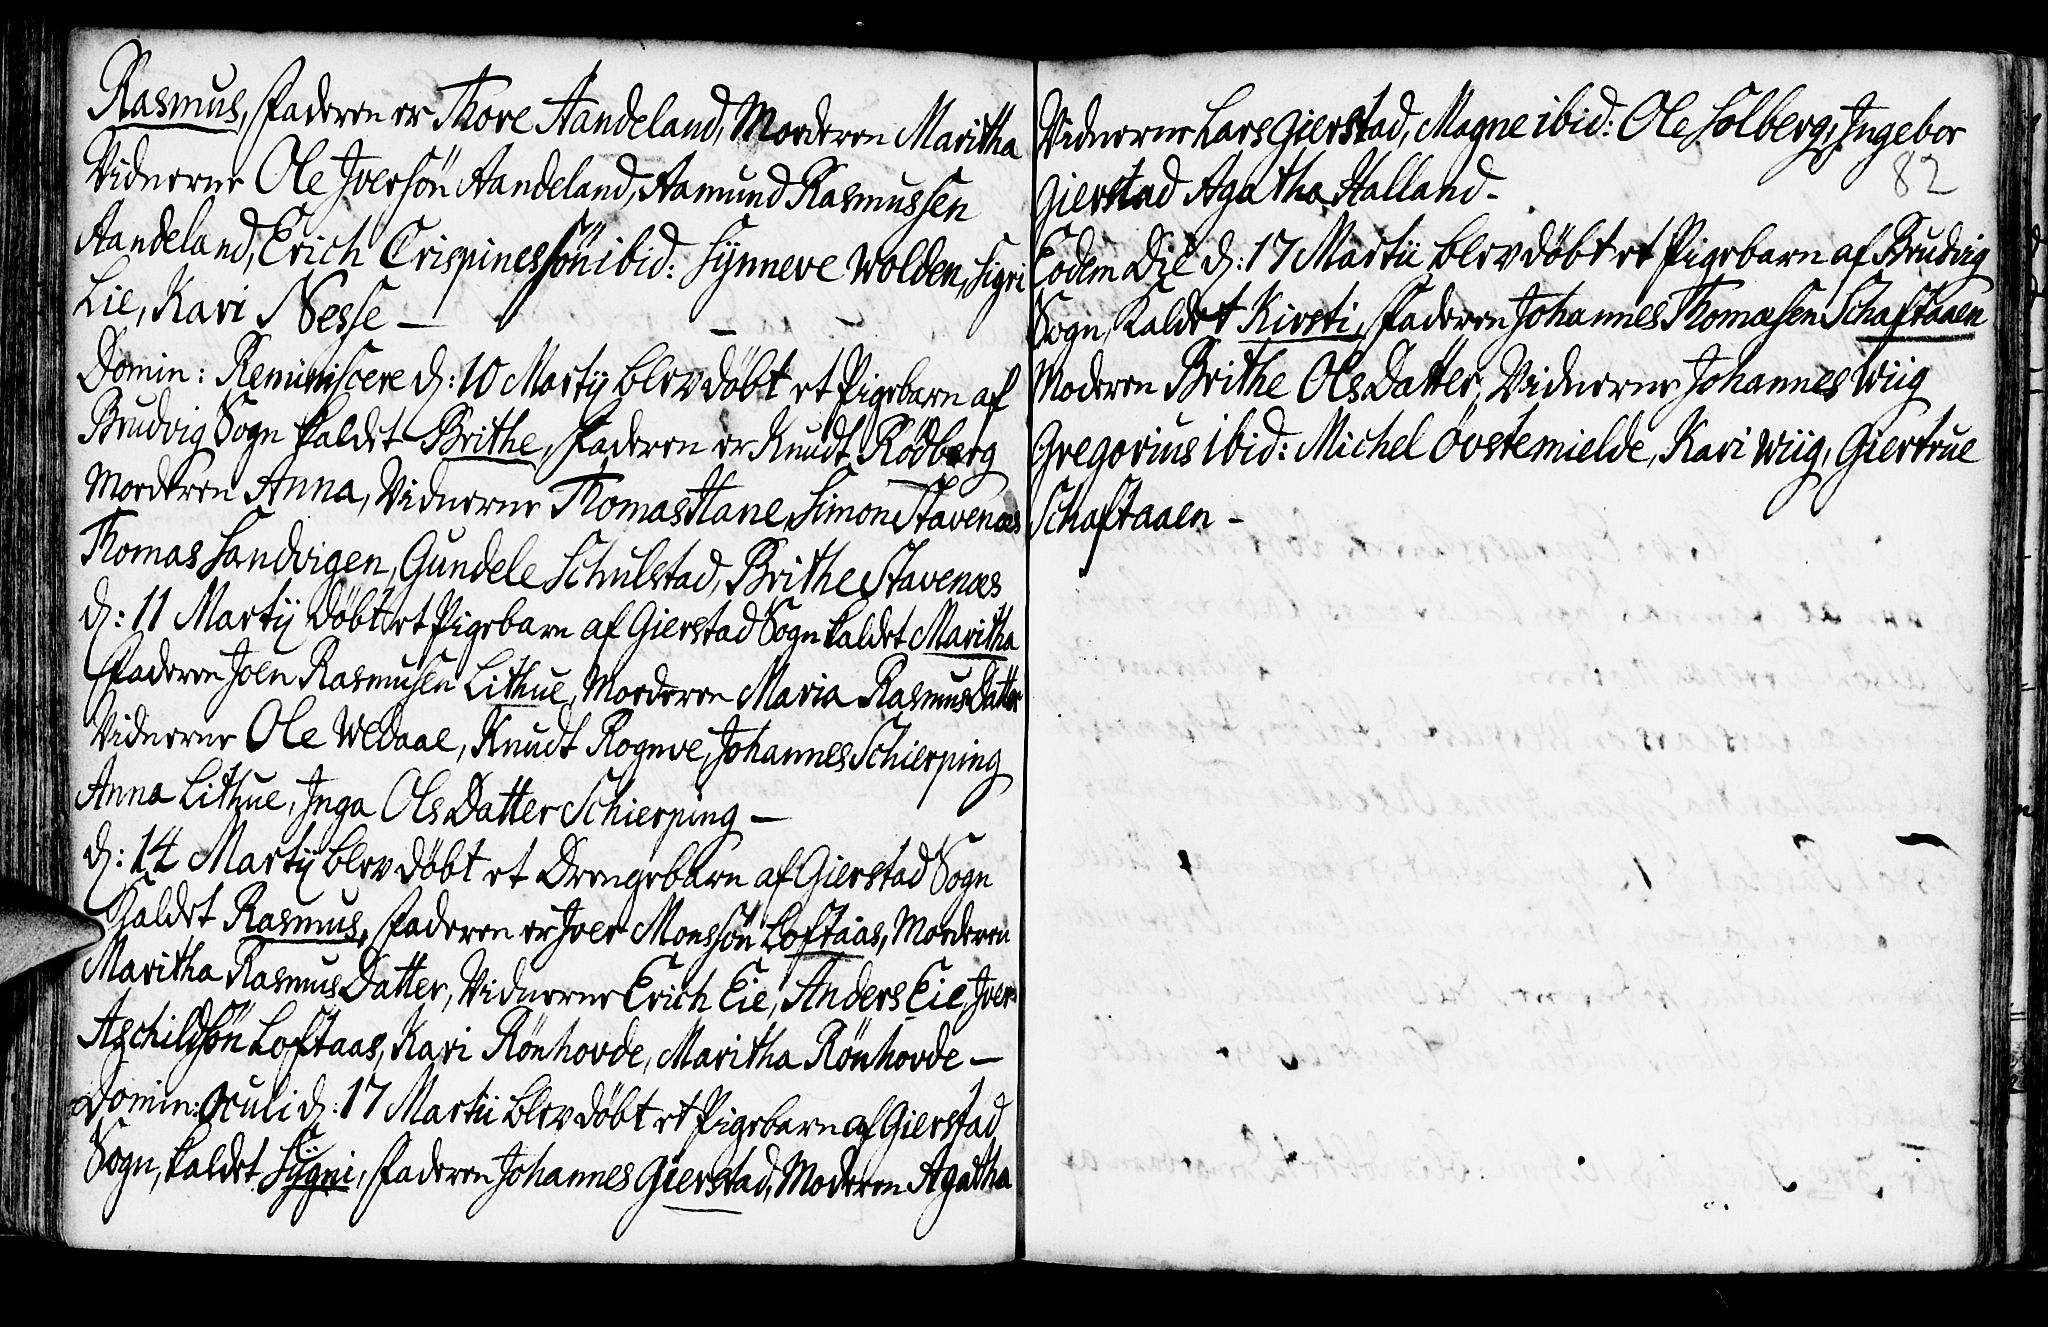 Rasmus, Faderen er Thore Aandeland, Moderen Maritha
Vidnerne Ole Jversön Aandeland, Aamund Rasmussen
Aandeland, Erich Crispinessön ibid: Synneve Wolden, Sigri
Lie, Kari Nesse —
Domin: Reminiscere d: 10 Martij blev döbt et Pigebarn af
Brudvig Sogn kaldet Brithe, Faderen er Knudt Rödberg
Moderen Anna, Vidnerne Thomas Hane, Simon Stavenæs
Thomas Sandvigen, Gundele Schulstad, Brithe Stavenæs
d: 11 Martij döbt et Pigebarn af Gierstad Sogn kaldet Maritha
Faderen Joen Rasmusen Lithue, Moderen Maria RasmusDatter
Vidnerne Ole Wedaae, Knudt Rognve, Johannes Schierping
Anna Lithue, Inga OlsDatter Schierping —
d: 14 Martij blev döbt et Drengebarn af Gierstad Sogn
Kaldet Rasmus, Faderen er Jver Monssön Loftaas, Moderen
Maritha RasmusDatter, Vidnerne Erich Eie, Anders Eie, Jver
Aschildsön Loftaas, Kari Rönhovde, Maritha Rönhovde —
Domin: Oculi d: 17 Martii blev döbt et Pigebarn af Gierstad
Sogn, kaldet Sygni, Faderen Johannes Gierstad, Moderen Agatha
Vidnerne Lars Gierstad, Magne ibid: Ole Solberg, Ingebor
82
Gierstad Agatha Halland -
Eodem Die d: 17 Martii blev döbt et Pigebarn af Brudvig
Sogn, kaldet Kirsti, Faderen Johannes Thomæsen Schaftaaen
Moderen Brithe OlsDatter, Vidnerne Johannes Wiig
Gregorius ibid: Michel Övstemielde, Kari Wiig, Giertrue
Schaftaaen -